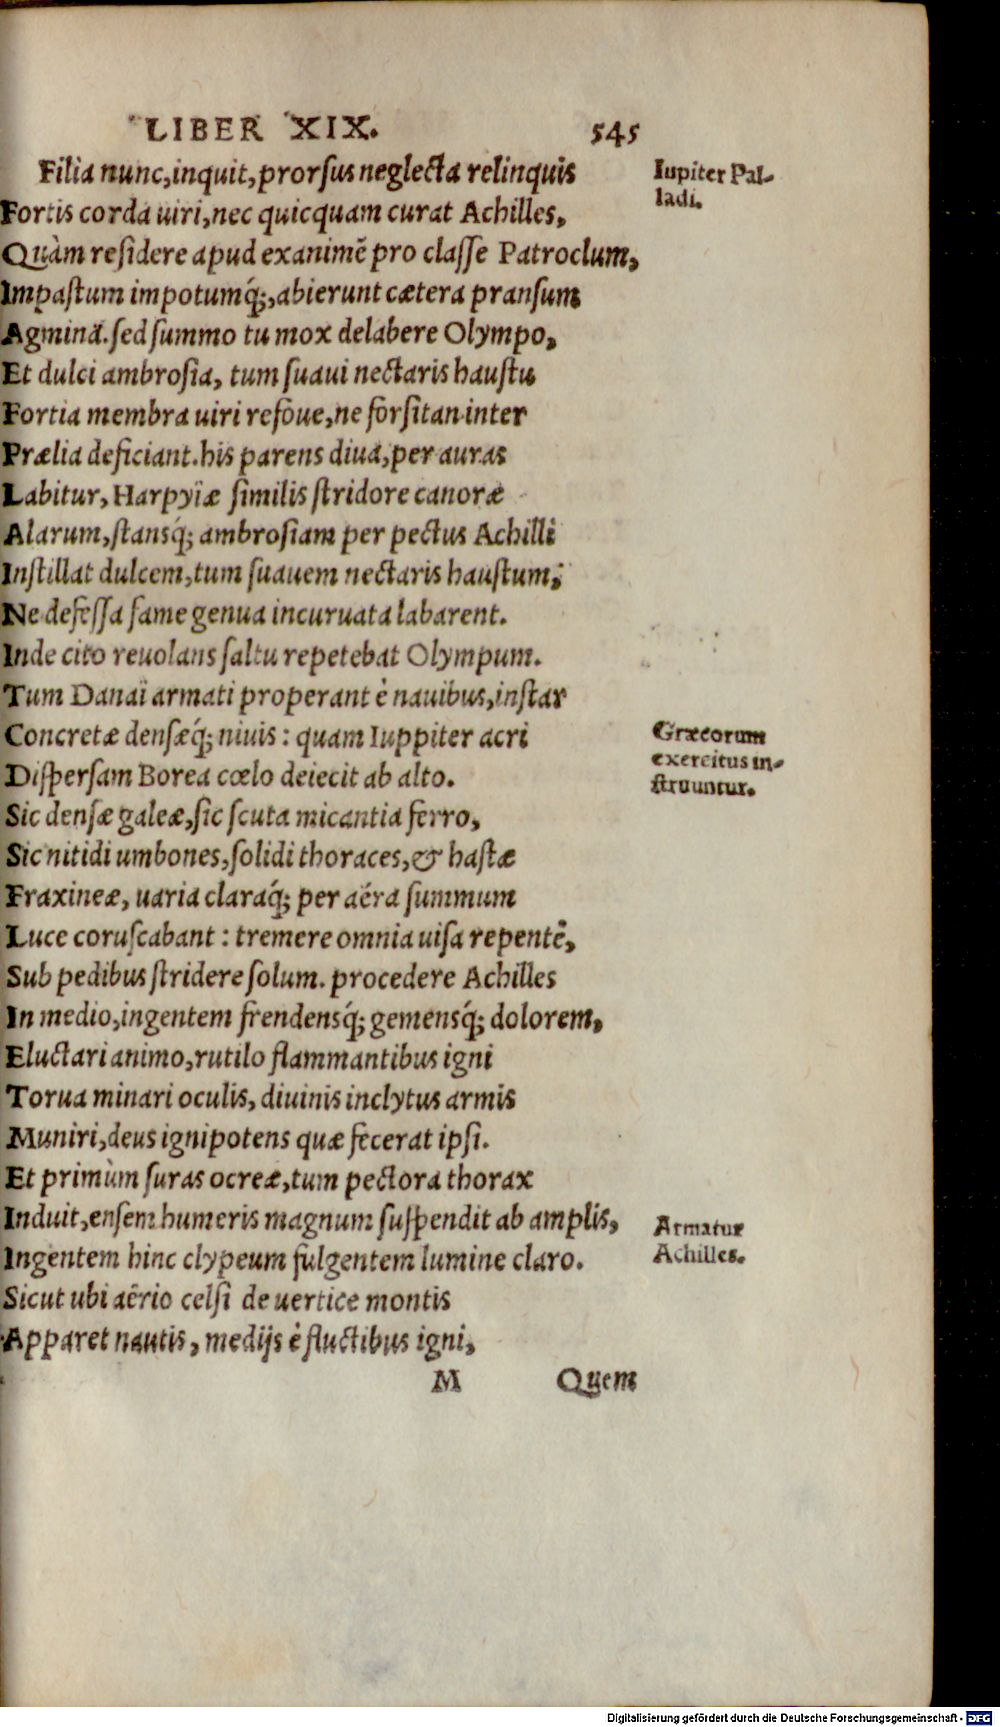 LIBER XIX. 545
Filia nunc, inquit, prorsus neglecta relinquis
Iupiter Pal-
ladi.
Fortis corda uiri, nec quicquam curat Achilles,
Quàm residere apud exanimē pro classe Patroclum,
Impastum impotumq́;, abierunt cætera pransum
Agmina. sed summo tu mox delabere Olympo,
Et dulci ambrosia, tum suaui nectaris haustu
Fortia membra uiri refoue, ne forsitan inter
Prælia deficiant. his parens diua, per auras
Labitur, Harpyiæ similis stridore canoræ
Alarum, stansq́; ambrosiam per pectus Achilli
Instillat dulcem, tum suauem nectaris haustum;
Ne defessa fame genua incuruata labarent.
Inde cito reuolans saltu repetebat Olympum.
Tum Danaï armati properant è nauibus, instar
Concretæ densæq́; niuis: quam Iuppiter acri
Græcorum
exercitus in-
struuntur.
Dispersam Borea cœlo deiecit ab alto.
Sic densæ galeæ, sic scuta micantia ferro,
Sic nitidi umbones, solidi thoraces, & hastæ
Fraxineæ, uaria claraq́; per aëra summum
Luce coruscabant: tremere omnia uisa repentè,
Sub pedibus stridere solum. procedere Achilles
In medio, ingentem frendensq́; gemensq́; dolorem,
Eluctari animo, rutilo flammantibus igni
Torua minari oculis, diuinis inclytus armis
Muniri, deus ignipotens quæ fecerat ipsi.
Et primùm suras ocreæ, tum pectora thorax
Induit, ensem humeris magnum suspendit ab amplis,
Armatur
Achilles.
Ingentem hinc clypeum fulgentem lumine claro.
Sicut ubi aërio celsi de uertice montis
Apparet nautis, medijs è fluctibus igni,
M Quem
Digitalisierung gefördert durch die Deutsche Forschungsgemeinschaft - DFG